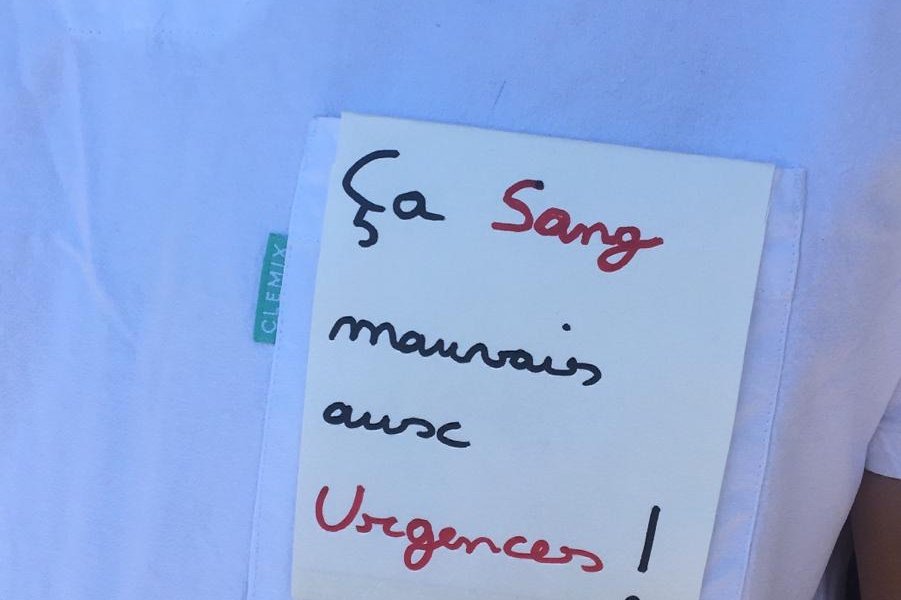 Ça Sang
mauvais
aux
Urgences !
CLEMIX